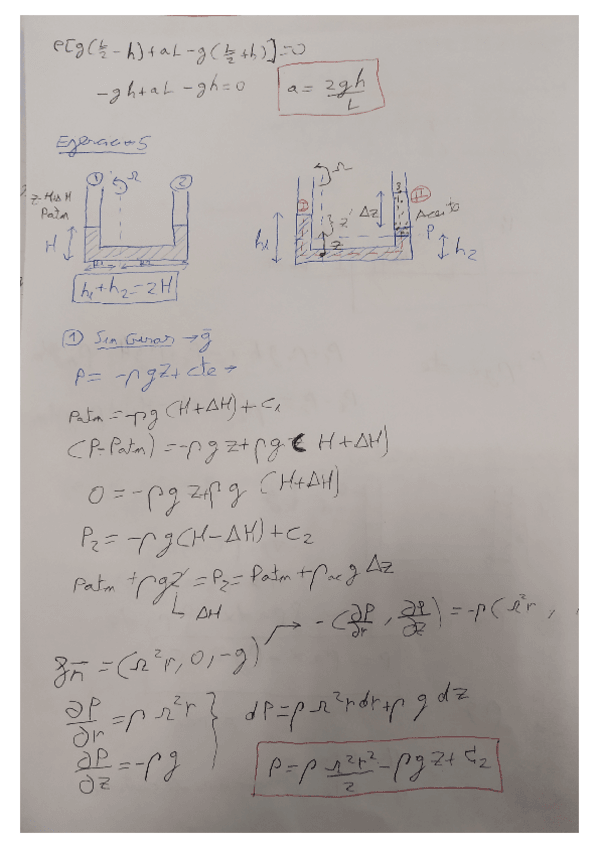 ρ[g(L/2 - h) + aL - g(L/2 + h)] = 0
-gh + aL - gh = 0   a = 2gh/L
Ejercicio 5
① Ω ②
Patm
H
h₁ + h₂ = 2H
Ω
h₁ z' z Δz 3 Aceite P h₂
① Sin Girar → g̅
P = -ρgz + cte →
Patm = -ρg(H+ΔH) + C₁
(P-Patm) = -ρgz + ρg(H+ΔH)
0 = -ρgz + ρg (H+ΔH)
P₂ = -ρg(H-ΔH) + C₂
Patm + ρgz = P₂ = Patm + ρac g Δz
↳ ΔH
→ -(∂P/∂r, ∂P/∂z) = -ρ(Ω²r,
= (Ω²r, 0, -g)
∂P/∂r = ρΩ²r } dP = ρΩ²rdr + ρg dz
∂P/∂z = -ρg
P = ρ Ω²r²/2 - ρgz + C₂